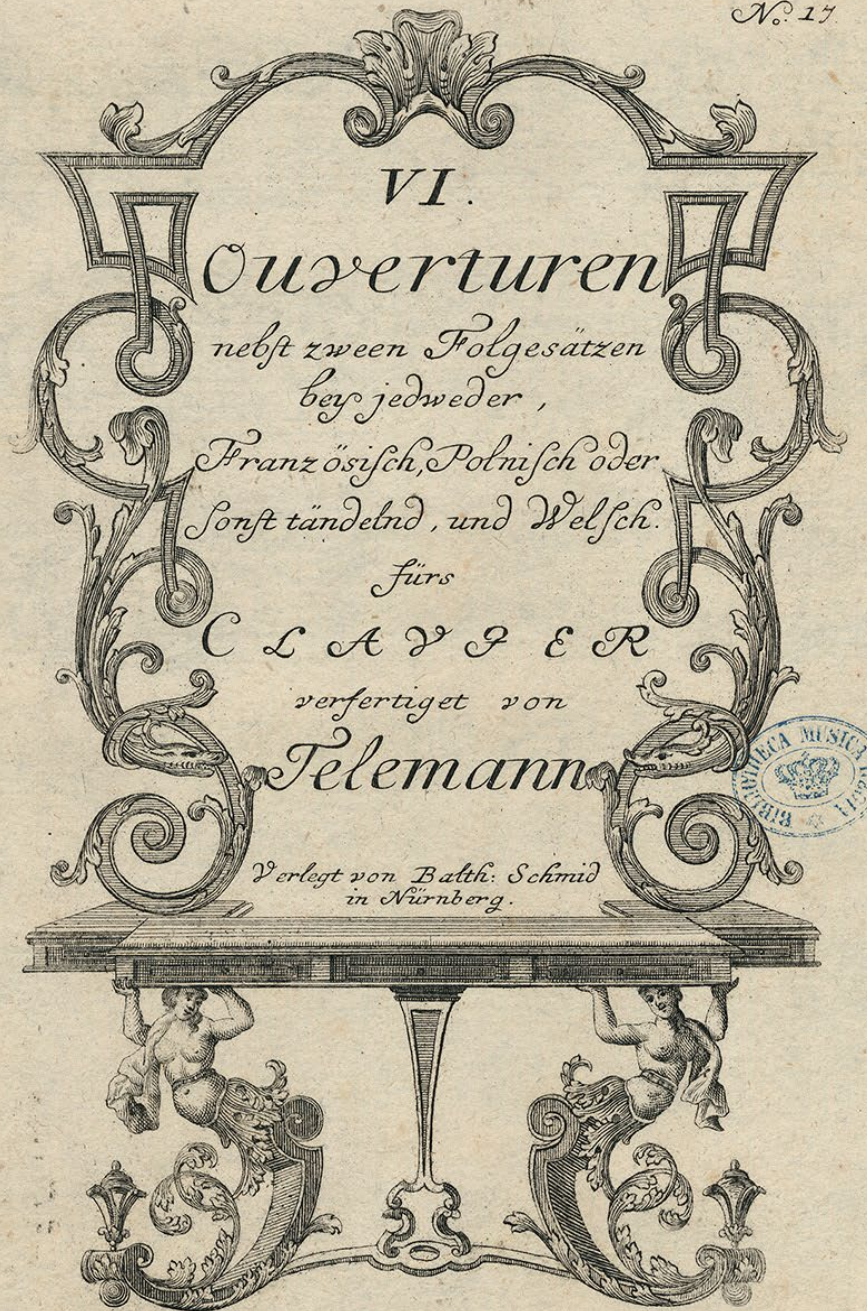 No. 17.
VI.
Ouverturen
nebſt zween Folgesätzen
bey jedweder,
Französiſch, Polniſch oder
ſonſt tändelnd, und Welſch.
fürs
CLAVIER
verfertiget von
Telemann.
Verlegt von Balth: Schmid
in Nürnberg.
BIBLIOTHECA MUSICA REGIA